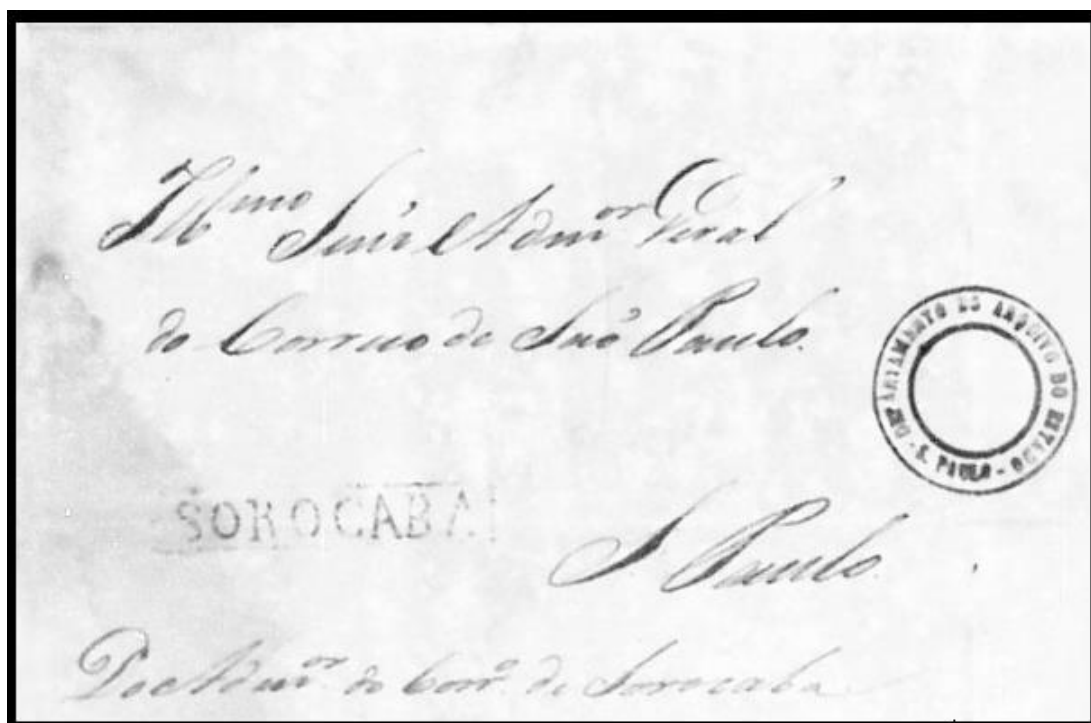 Illmo Senr Admor Geral
do Correio de São Paulo.
DEPARTAMENTO DO ARQUIVO DO ESTADO - S. PAULO -
SOROCABA
S. Paulo.
Do Admor. do Corro. de Sorocaba